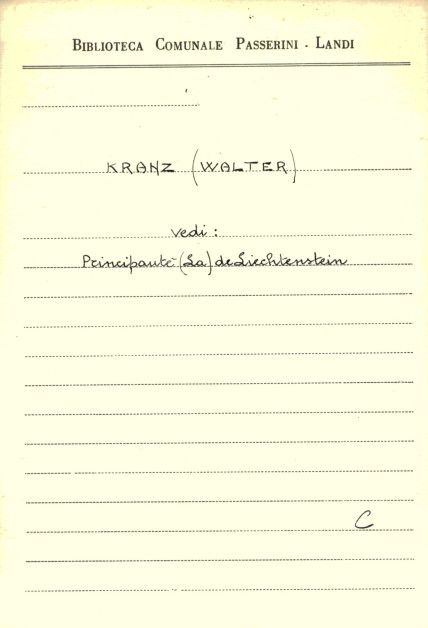 BIBLIOTECA COMUNALE PASSERINI - LANDI
KRANZ (WALTER)
vedi :
Principauté (La) de Liechtenstein
C